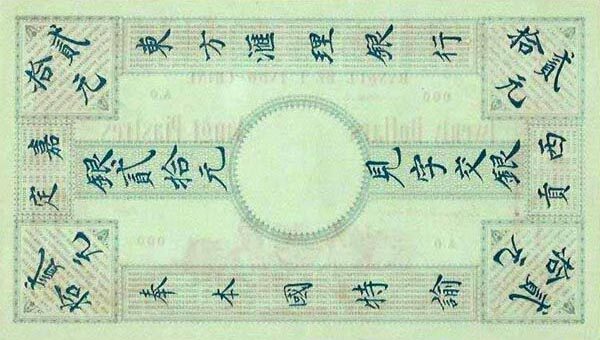 貳拾元
東方滙理銀行
貳拾元
嘉定
銀貳拾元
見字交銀
西貢
貳拾元
奉本國特諭
貳拾元